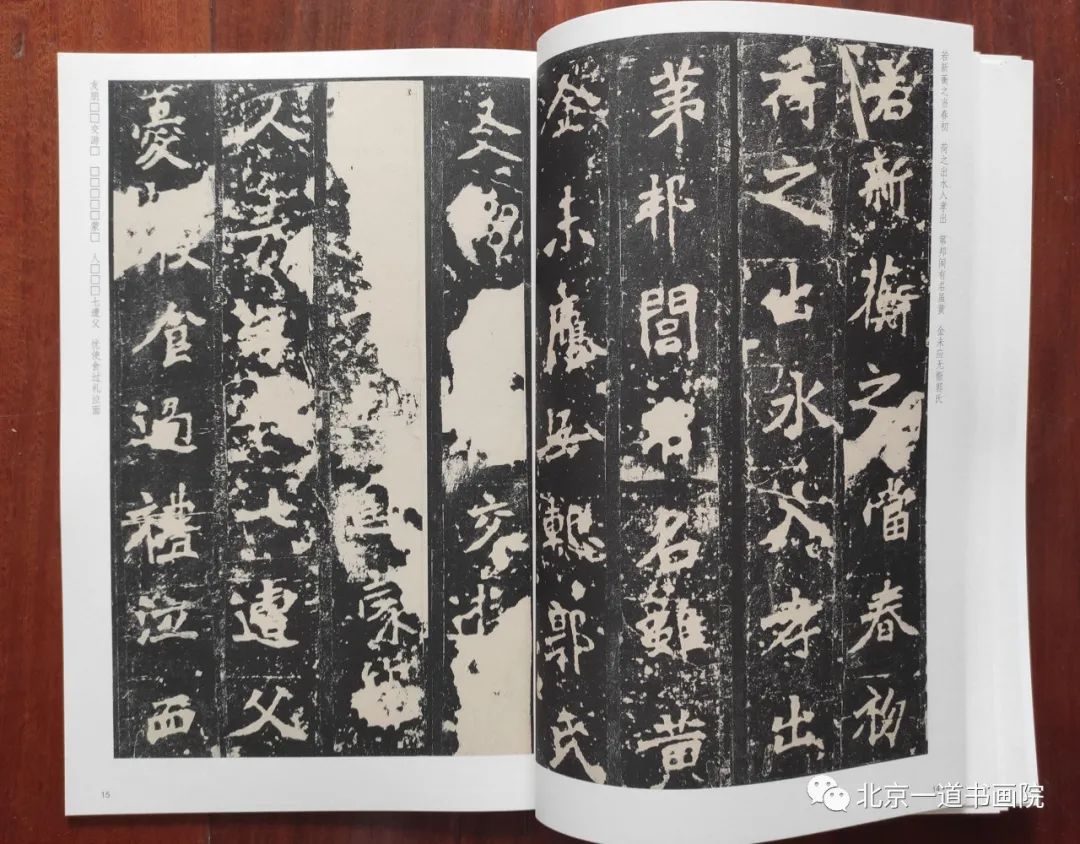 若新衡之当春初 荷之出水入孝出 第邦闾有名虽黄 金未应无惭郭氏
若新蘅之當春初
荷之出水入孝出
第邦閭有名雖黃
金未應無慙郭氏
交游
人七遭父
憂食過禮泣面
友朋□□交游□ □□□□□蒙□ 人□□□七遭父 忧使食过礼泣面
15
北京一道书画院